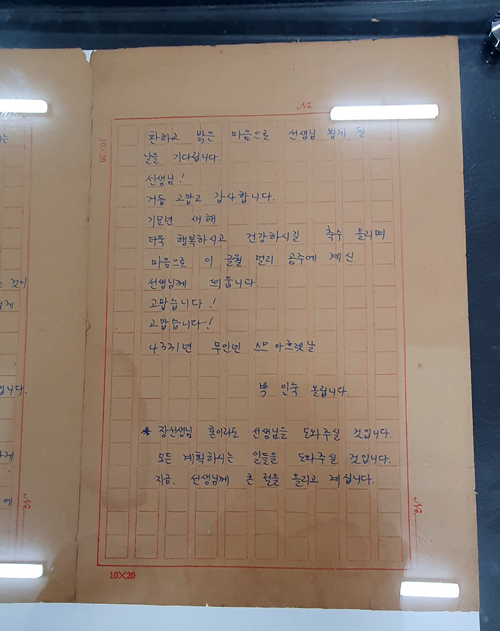 No.
10/20
환하고 밝은 마음으로 선생님 뵙게 될
날을 기다립니다.
선생님!
거듭 고맙고 감사합니다.
기묘년 새해
더욱 행복하시고 건강하시길 축수 올리며
마음으로 이 글월 멀리 공주에 계신
선생님께 띄웁니다
고맙습니다!
고맙습니다!
4331년 무인년 스무아흐렛날
박 인숙 올립니다.
* 장선생님 혼이라도 선생님을 도와주실 것입니다.
모든 계획하시는 일들을 도와주실 것입니다.
지금. 선생님께 큰 절을 올리고 계십니다.
10×20